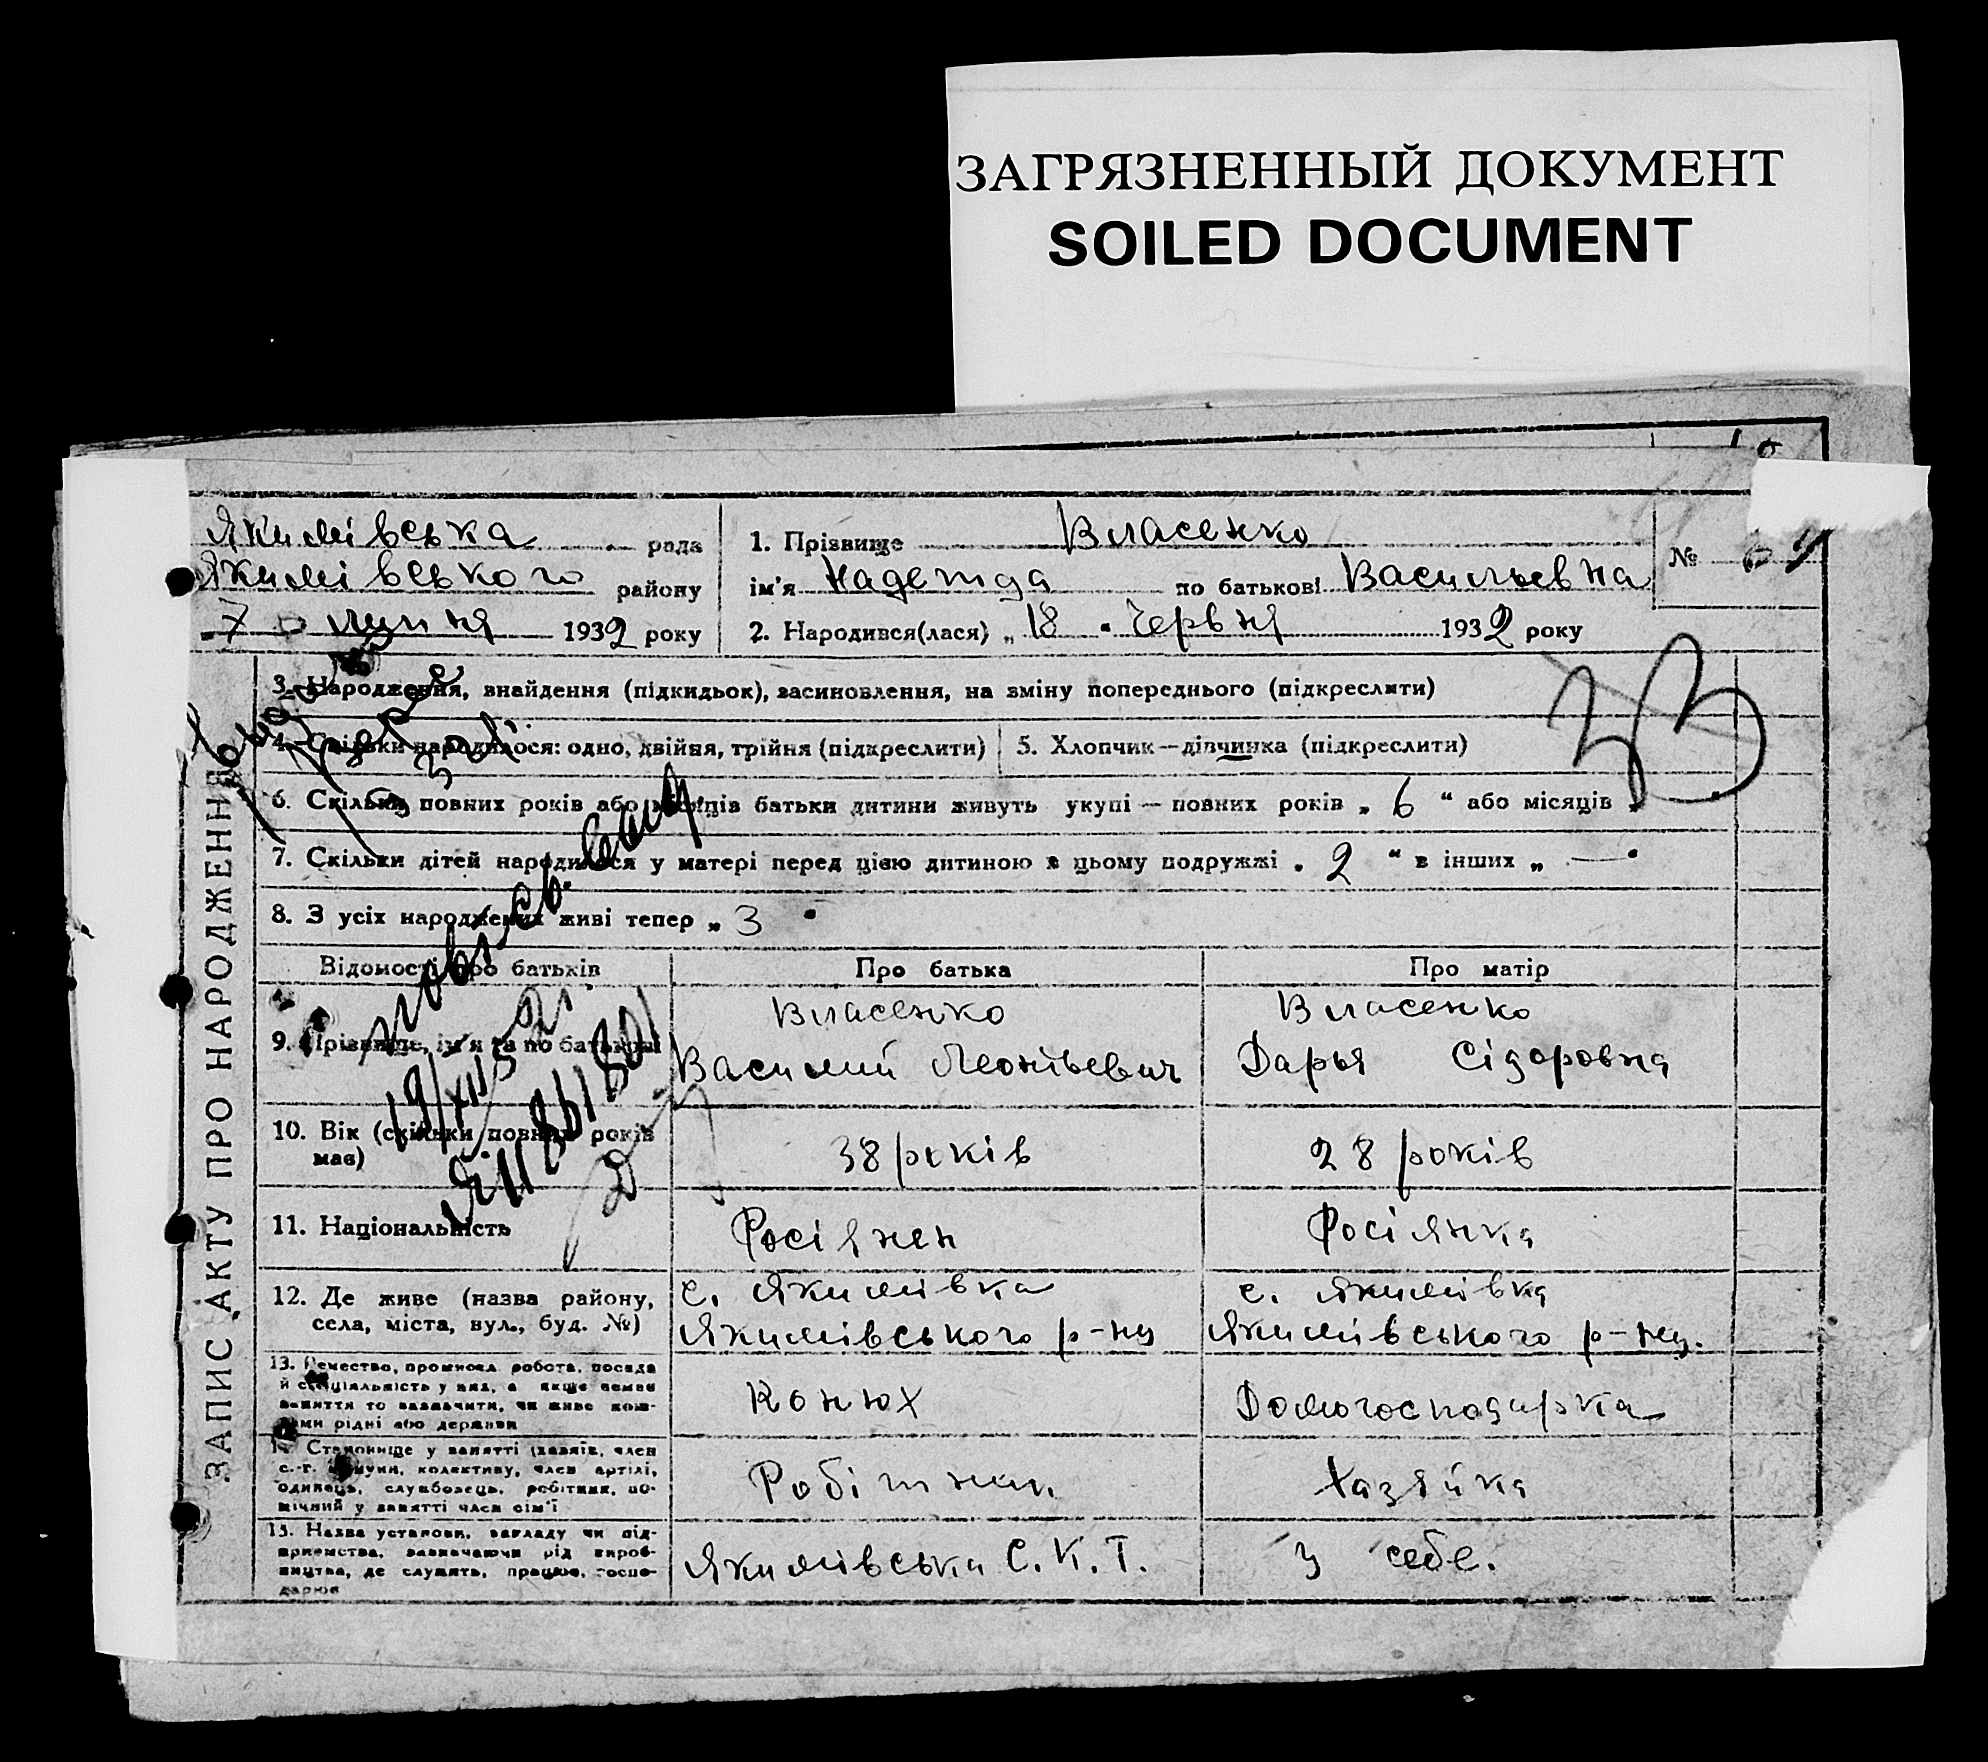 ЗАГРЯЗНЕННЫЙ ДОКУМЕНТ
SOILED DOCUMENT
Якимівська рада
Якимівського району
7 липня 1932 року
1. Прізвище Власенко
ім'я Надежда по батькові Васильевна
№
2. Народився(лася) „ 18 " червня 1932 року
ЗАПИС АКТУ ПРО НАРОДЖЕННЯ
3. Народження, знайдення (підкидьок), засиновлення, на зміну попереднього (підкреслити)
4. Скільки народилося: одно, двійня, трійня (підкреслити)
5. Хлопчик—дівчинка (підкреслити)
6. Скільки повних років або місяців батьки дитини живуть укупі — повних років „ 6 " або місяців „ "
7. Скільки дітей народилося у матері перед цією дитиною в цьому подружжі „ 2 " в інших „ — "
8. З усіх народжених живі тепер „ 3 "
Відомості про батьків
Про батька
Про матір
9. Прізвище, ім'я та по батькові
Власенко
Василий Леонтьевич
Власенко
Дарья Сідоровна
10. Вік (скільки повних років
має)
38 років
28 років
11. Національність
Росіянен
Росіянка
12. Де живе (назва району,
села, міста, вул., буд. №)
с. Якимівка
Якимівського р-ну
с. Якимівка
Якимівського р-ну.
13. Ремество, промисел, робота, посада
й спеціяльність у них, а якщо немає
заняття то зазначити, чи живе кош-
тами рідні або держави
Конюх
Домогосподарка
14. Становище у занятті (хазяїн, член
с.-г. комуни, колективу, член артілі,
одинець, службовець, робітник, по-
мічний у занятті член сім'ї
Робітник
Хазяйка
15. Назва установи, закладу чи під-
приємства, зазначаючи рід вироб-
ництва, де служить, працює, госпо-
дарює
Якимівська С.К.Т.
У себе.